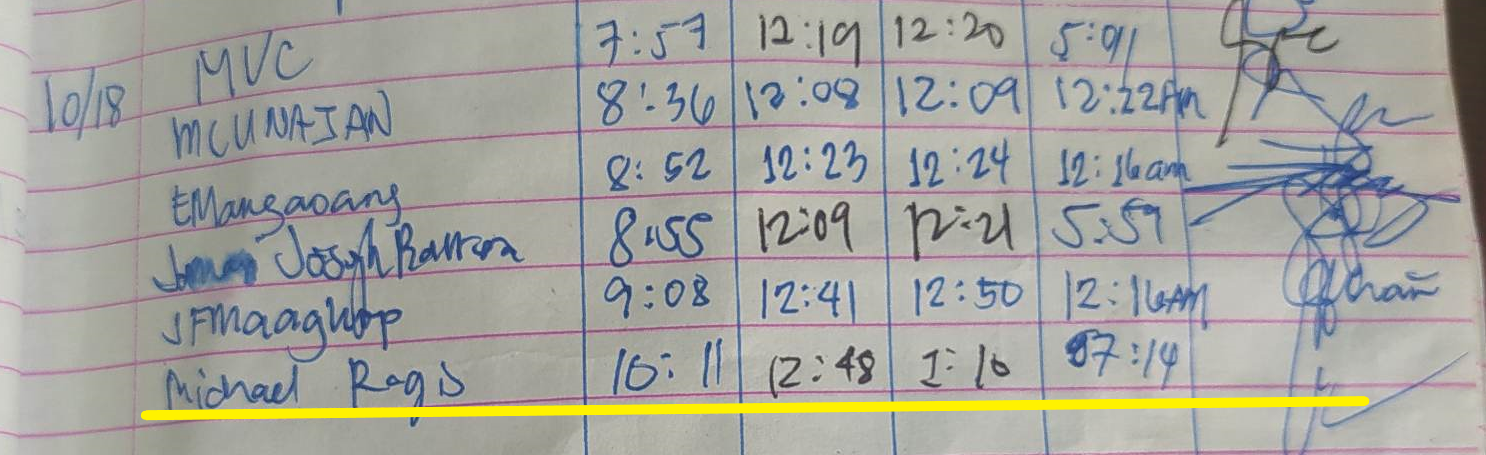 MVC 7:57 12:19 12:20 5:01
10/18 MCUNAJAN 8:36 12:08 12:09 12:22AM
EMangaoang 8:52 12:23 12:24 12:16am
Joseph 8:55 12:09 12:21 5:59
JFMaaghop 9:08 12:41 12:50 12:16AM
Michael Regis 10:11 12:48 1:10 07:14